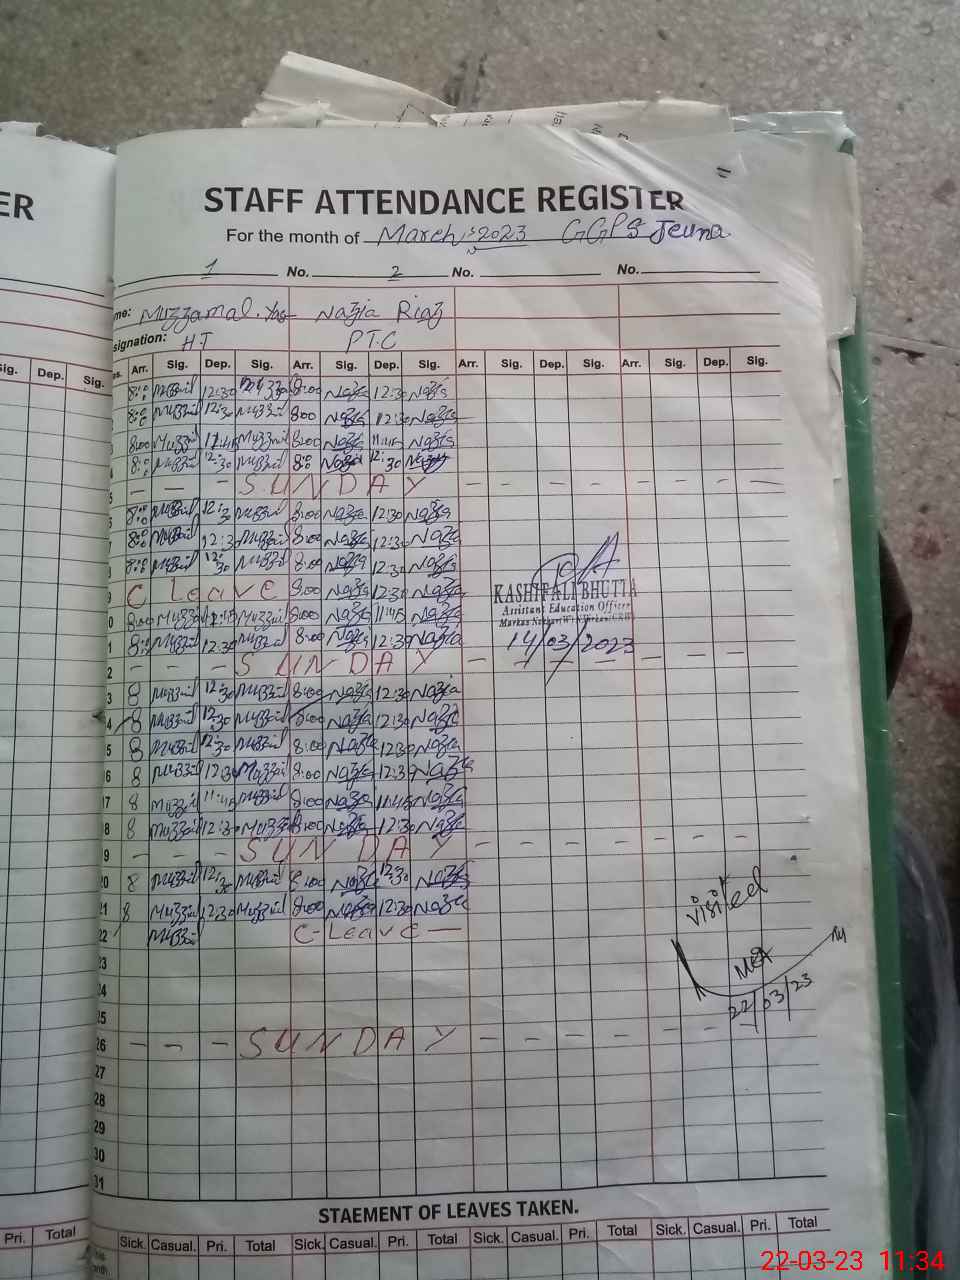 ER
STAFF ATTENDANCE REGISTER
For the month of March, 2023 GGPS Jeuna
1 No. 2 No. No.
me: Muzzamal. Nazia Riaz
signation: HT PTC
Sig. Dep. Sig. Arr. Sig. Dep. Sig. Arr. Sig. Dep. Sig. Arr. Sig. Dep. Sig. Arr. Sig. Dep. Sig.
8:00 Muzzmil 12:30 8:00 Nazia 12:30 Nazia
8:00 Muzzmil 12:30 Muzzmil 8:00 Nazia 12:30 Nazia
8:00 Muzzmil 11:45 Muzzmil 8:00 Nazia 11:45 Nazia
8:00 Muzzmil 12:30 Muzzmil 8:00 Nazia 12:30 Nazia
5 - - - SUNDAY - - - - - - - -
8:00 Muzzmil 12:30 Muzzmil 8:00 Nazia 12:30 Nazia
7 8:00 Muzzmil 12:30 Muzzmil 8:00 Nazia 12:30 Nazia
8:00 Muzzmil 12:30 Muzzmil 8:00 Nazia 12:30 Nazia
9 C Leave 8:00 Nazia 12:30 Nazia
KASHIF ALI BHUTTA
Assistant Education Officer
0 8:00 Muzzmil Muzzmil 8:00 Nazia 11:45 Nazia
1 8:00 Muzzmil 12:30 Muzzmil 8:00 Nazia 12:30 Nazia
14/03/2023
2 - - - SUNDAY - - - - - - - -
3 8 Muzzmil 12:30 Muzzmil 8:00 Nazia 12:30 Nazia
4 8 Muzzmil 12:30 Muzzmil 8:00 Nazia 12:30 Nazia
5 8 Muzzmil 12:30 Muzzmil 8:00 Nazia 12:30 Nazia
6 8 Muzzmil 12:30 Muzzmil 8:00 Nazia 12:30 Nazia
17 8 Muzzmil 11:45 Muzzmil 8:00 Nazia 11:45 Nazia
8 8 Muzzmil 12:30 Muzzmil 8:00 Nazia 12:30 Nazia
9 - - - SUNDAY - - - - - - - -
20 8 Muzzmil 12:30 Muzzmil 8:00 Nazia 12:30 Nazia
21 8 Muzzmil 12:30 Muzzmil 8:00 Nazia 12:30 Nazia
22 Muzzmil C-Leave -
visited
MEA
22/03/23
23
24
25
26 - - - SUNDAY - - - - - - - -
27
28
29
30
31
STAEMENT OF LEAVES TAKEN.
Pri. Total Sick. Casual. Pri. Total Sick. Casual. Pri. Total Sick. Casual. Pri. Total Sick. Casual. Pri. Total
22-03-23 11:34